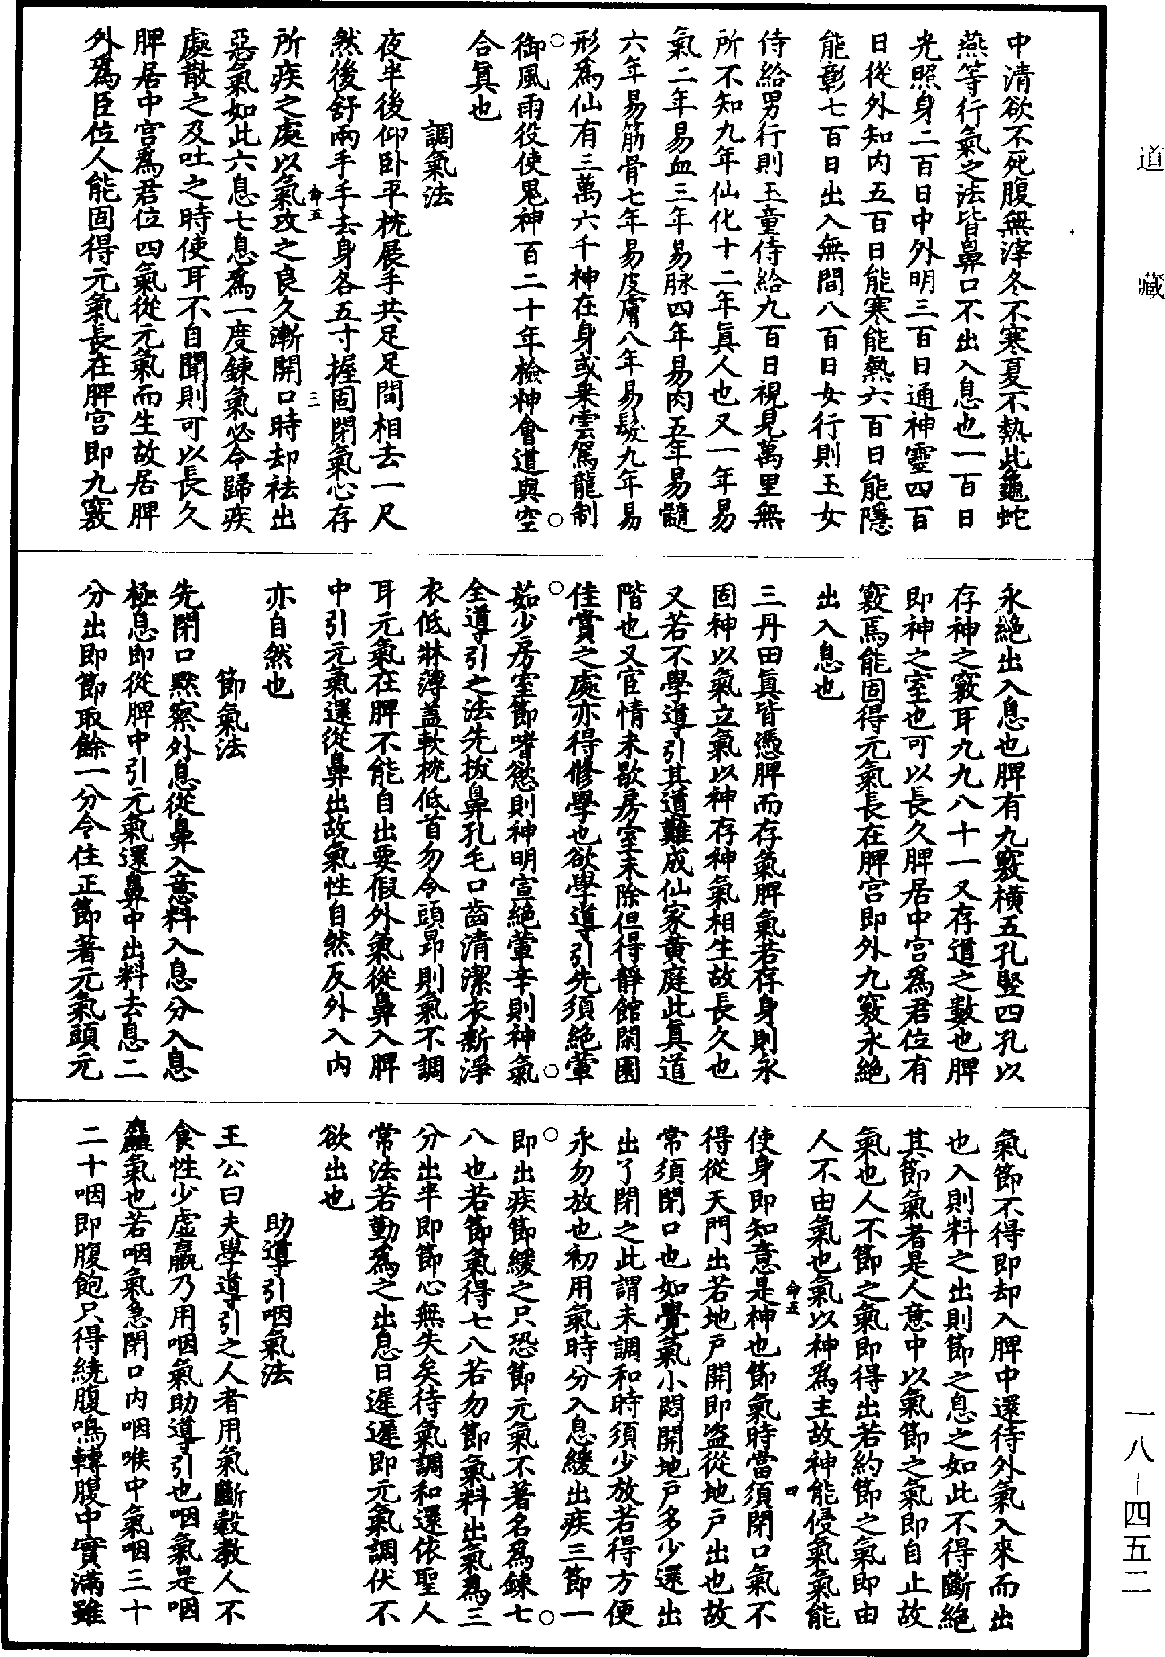 道藏
中清欲不死腹無滓冬不寒夏不熱此龜蛇
燕等行氣之法皆鼻口不出入息也一百日
光照身二百日中外明三百日通神靈四百
日從外知內五百日能寒能熱六百日能隱
能彰七百日出入無間八百日女行則玉女
侍給男行則玉童侍給九百日視見萬里無
所不知九年仙化十二年真人也又一年易
氣二年易血三年易脉四年易肉五年易髓
六年易筋骨七年易皮膚八年易髮九年易
形為仙有三萬六千神在身或乘雲駕龍制
御風雨役使鬼神百二十年檢神會道與空
合真也
調氣法
夜半後仰卧平枕展手共足足間相去一尺
然後舒兩手手去身各五寸握固閉氣心存
命五 三
所疾之處以氣攻之良久漸開口時却袪出
惡氣如此六息七息為一度鍊氣必令歸疾
處散之及吐之時使耳不自聞則可以長久
脾居中宮為君位四氣從元氣而生故居脾
外為臣位人能固得元氣長在脾宮即九竅
永絕出入息也脾有九竅橫五孔竪四孔以
存神之竅耳九九八十一又存道之數也脾
即神之室也可以長久脾居中宮為君位有
竅焉能固得元氣長在脾宮即外九竅永絕
出入息也
三丹田真皆憑脾而存氣脾氣若存身則永
固神以氣立氣以神存神氣相生故長久也
又若不學導引其道難成仙家黃庭此真道
階也又官情未歇房室未除但得靜館閑園
佳賞之處亦得修學也欲學導引先須絕葷
茹少房室節嗜慾則神明宣絕葷辛則神氣
全導引之法先拔鼻孔毛口齒清潔衣新淨
衣低牀薄蓋軟枕低首勿令頭昂則氣不調
耳元氣在脾不能自出要假外氣從鼻入脾
中引元氣還從鼻出故氣性自然反外入內
亦自然也
節氣法
先閉口默察外息從鼻入意料入息分入息
極息即從脾中引元氣還鼻中出料去息二
分出即節取餘一分令住正節著元氣頭元
氣節不得即却入脾中還待外氣入來而出
也入則料之出則節之息之如此不得斷絕
其節氣者是人意中以氣節之氣即自止故
氣也人不節之氣即得出若約節之氣即由
人不由氣也氣以神為主故神能侵氣氣能
使身即知意是神也節氣時當須閉口氣不
命五 四
得從天門出若地戶開即盜從地戶出也故
常須閉口也如覺氣小悶開地戶多少還出
出了閉之此謂未調和時須少放若得方便
永勿放也初用氣時分入息緩出疾三節一
即出疾節緩之只恐節元氣不著名為鍊七
八也若節氣得七八若勿節氣料出氣為三
分出半即節心無失矣待氣調和還依聖人
常法若勤為之出息日遲遲即元氣調伏不
欲出也
助導引咽氣法
王公曰夫學導引之人者用氣斷穀教人不
食性少虛羸乃用咽氣助導引也咽氣是咽
麤氣也若咽氣急閉口內咽喉中氣咽三十
二十咽即腹飽只得繞腹鳴轉腹中實滿雖
一八-四五二